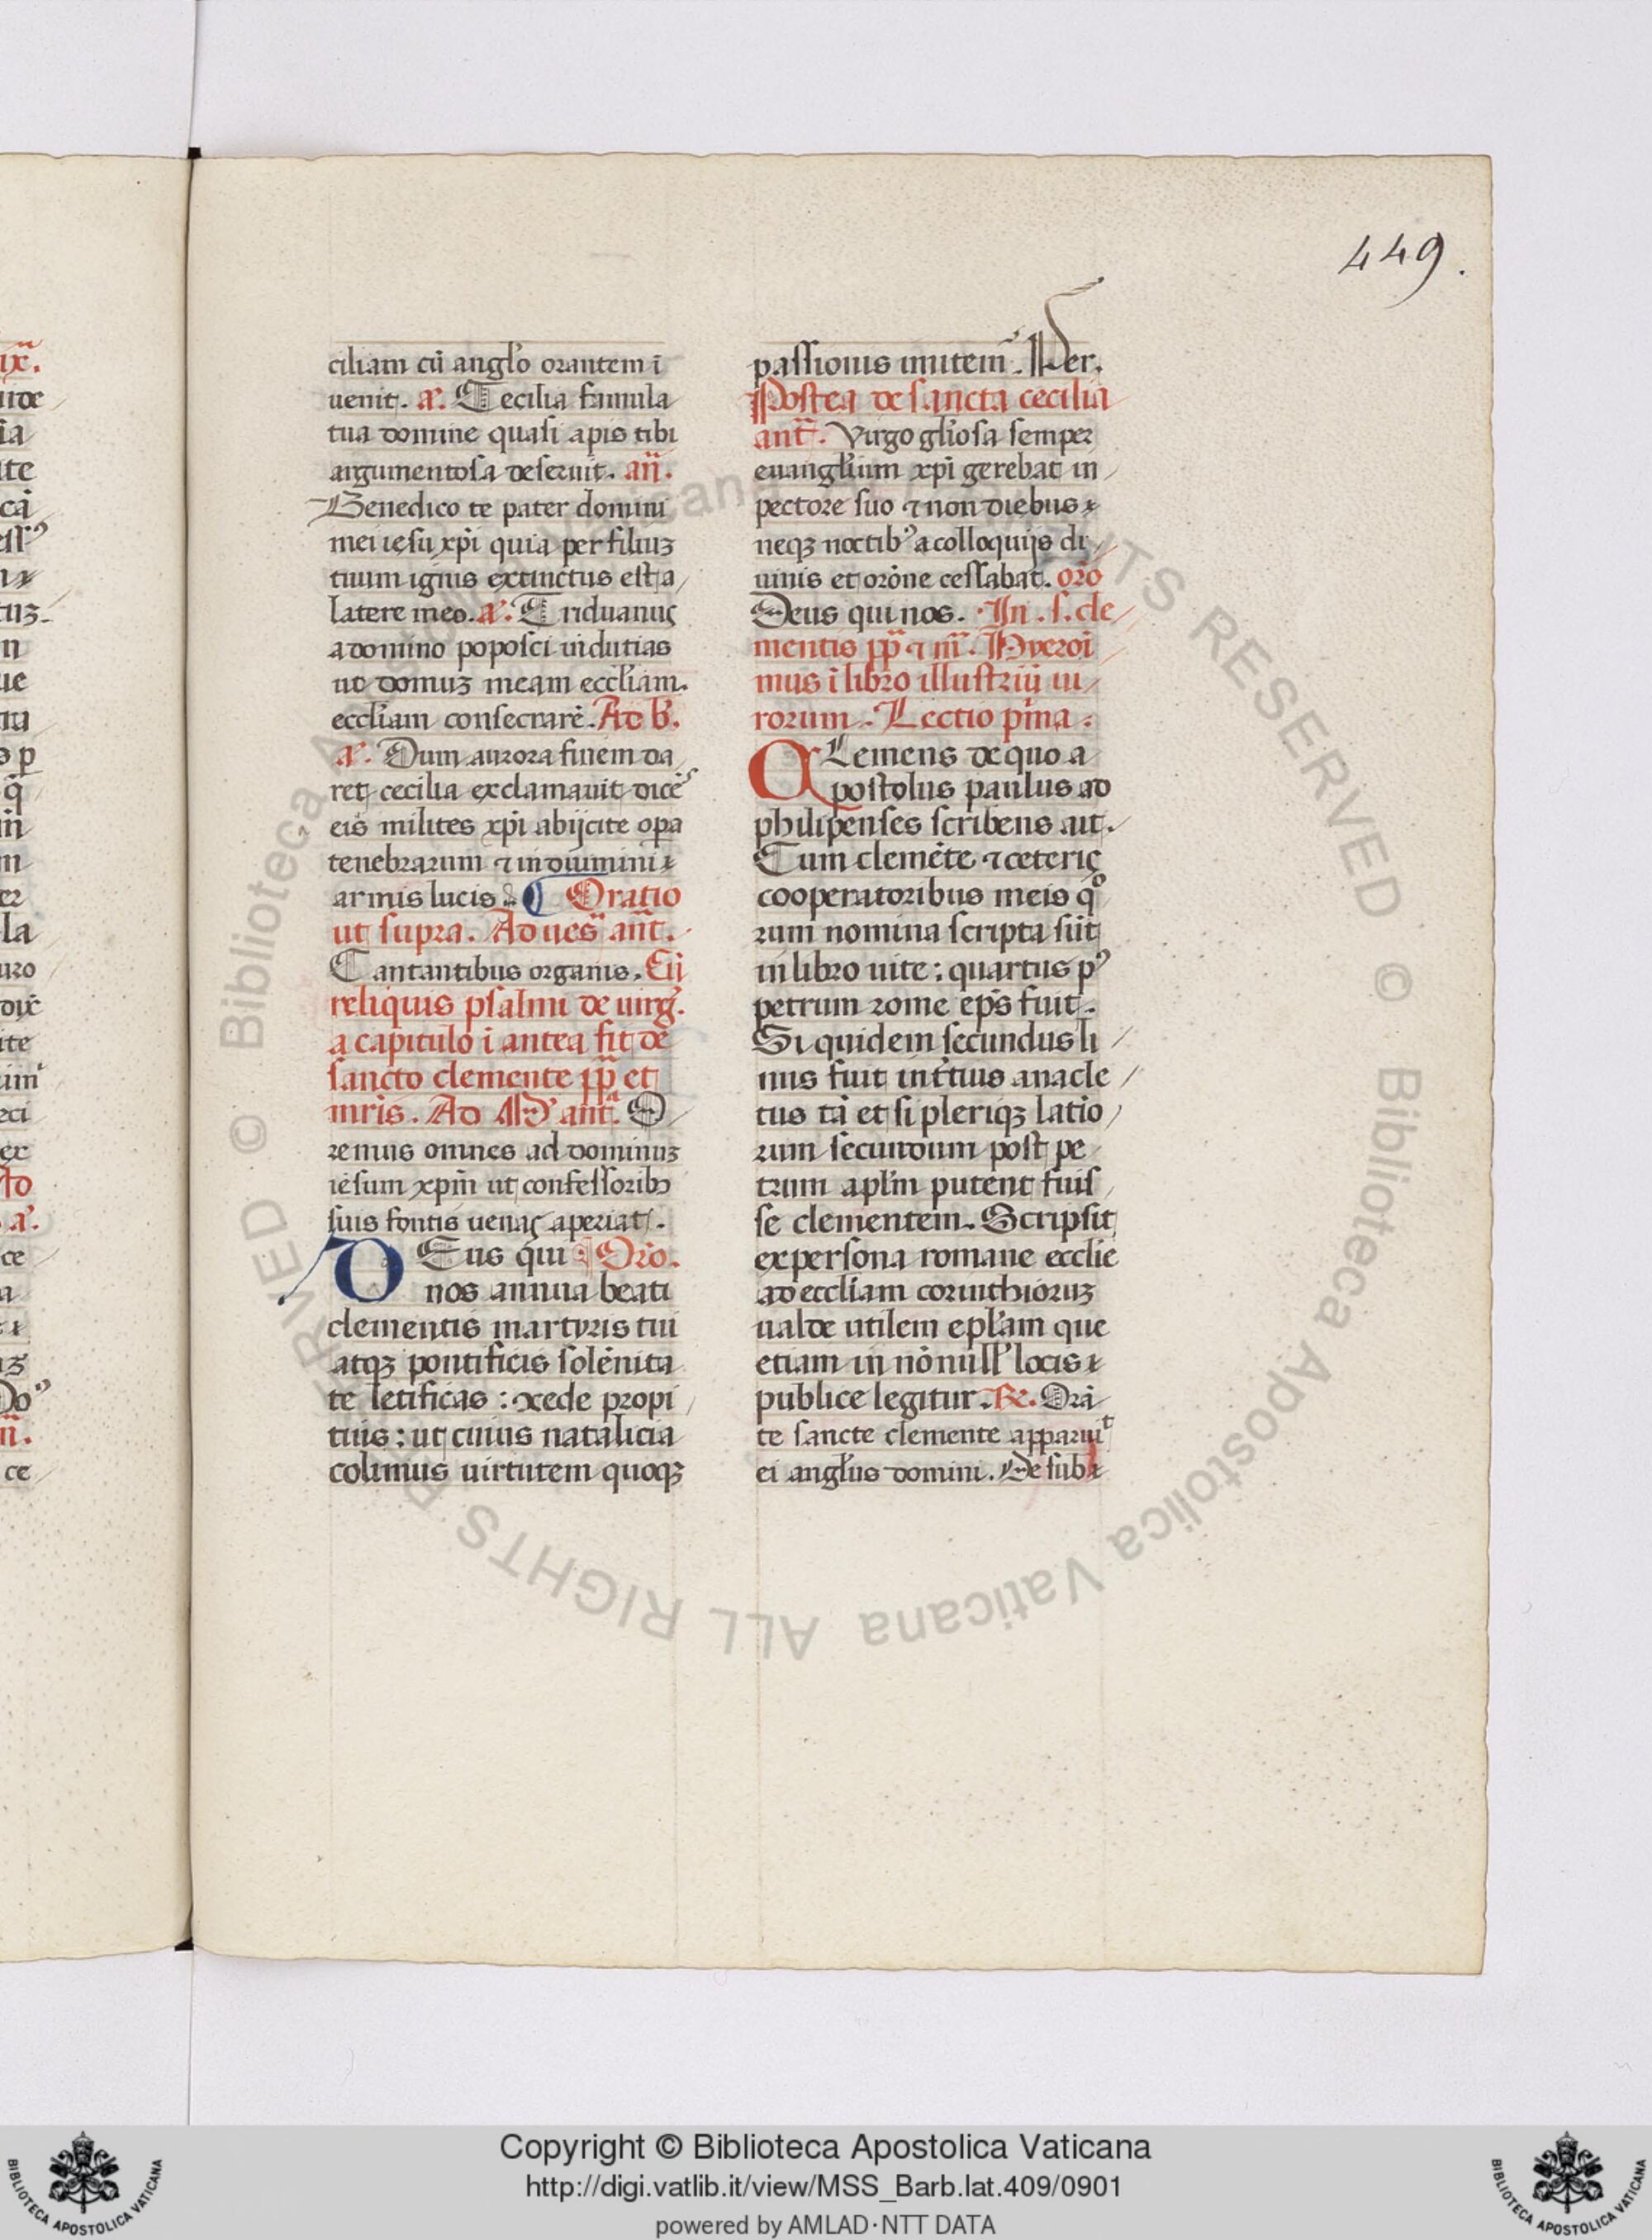 449.
ciliam cū angl'o orantem ī
uenit. a'. Cecilia famula
tua domine quasi apis tibi
argumentosa deseruit. an̄.
Benedico te pater domini
mei iesu xp̄i quia per filiuꝫ
tuum ignis extinctus est a
latere meo. a'. Triduanus
a domino poposci indutias
ut domuꝫ meam eccl'iam.
eccl'iam consecrarē. Ad b'.
a'. Dum aurora finem da
ret cecilia exclamauit dicēs
eis milites xp̄i abijcite op̄a
tenebrarum ⁊ induimini
armis lucis. Oratio
ut supra. Ad ues̄ ant̄.
Cantantibus organis. Cū
reliquis psalmi de uirg'.
a capitulo ī antea fit de
sancto clemente pp̄ et
mr̄is. Ad M̄ ant̄. O
remus omnes ad dominuꝫ
iesum xp̄m ut confessoribꝫ
suis fontis uenas aperiat.
DEus qui Orō.
nos annua beati
clementis martyris tui
atqꝫ pontificis solēnita
te letificas : ꝯcede propi
tius : ut cuius natalicia
colimus uirtutem quoqꝫ
passionis imitem̄. Per.
Postea de sancta cecilia
ant̄. Virgo gl'iosa semper
euangl'ium xp̄i gerebat in
pectore suo ⁊ non diebus
neqꝫ noctibꝰ a colloquijs di
uinis et orōne cessabat. orō
Deus qui nos. In. s. cle
mentis pp̄ ⁊ m̄. Hyeroni
mus ī libro illustriū ui
rorum. Lectio p̄ma.
CLemens de quo a
postolus paulus ad
philipenses scribens ait.
Cum clemēte ⁊ ceteris
cooperatoribus meis qͦ
rum nomina scripta sūt
in libro uite : quartus pꝰ
petrum rome ep̄s fuit.
Siquidem secundus li
nus fuit in t'tius anacle
tus tā et si pleriqꝫ latio
rum secundum post pe
trum apl'm putent fuis
se clementem. Scripsit
ex persona romane ecclie
ad eccl'iam corinthioruꝫ
ualde utilem epl'am que
etiam in nōnull' locis
publice legitur. R. Orā
te sancte clemente apparuit
ei angl'us domini. De sub
Copyright © Biblioteca Apostolica Vaticana
http://digi.vatlib.it/view/MSS_Barb.lat.409/0901
powered by AMLAD·NTT DATA
BIBLIOTECA APOSTOLICA VATICANA
BIBLIOTECA APOSTOLICA VATICANA
© Biblioteca Apostolica Vaticana ALL RIGHTS RESERVED © Biblioteca Apostolica Vaticana ALL RIGHTS RESERVED